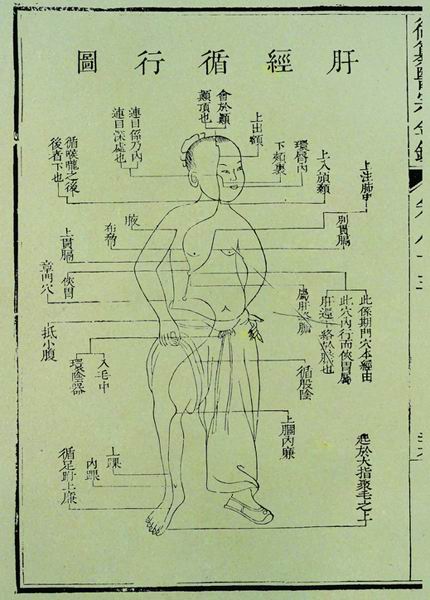 肝經循行圖
上注肺中
上入頏顙
環唇內
下頰裏
上出額
會於顛
顛頂也
連目係乃內
連目深處也
循喉嚨之後
後者下也
別貫膈
腋
布脇
上貫膈
俠胃
章門穴
抵小腹
此係期門穴本經由
此穴內行而俠胃屬
肝還絡於膽也
屬肝絡膽
循股陰
入毛中
環陰器
上膕內廉
起於大指聚毛之上
上踝
內踝
循足跗上廉